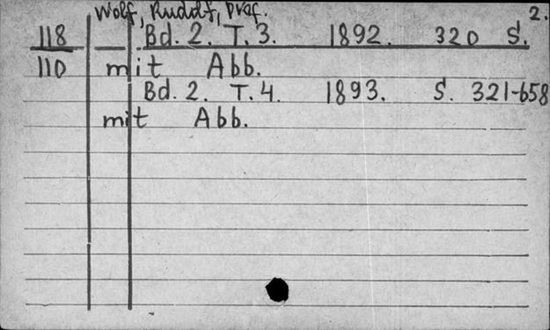 Wolf, Rudolf, Prof.
2.
118 Bd. 2. T. 3. 1892. 320 S.
110 mit Abb.
Bd. 2. T. 4. 1893. S. 321-658
mit Abb.